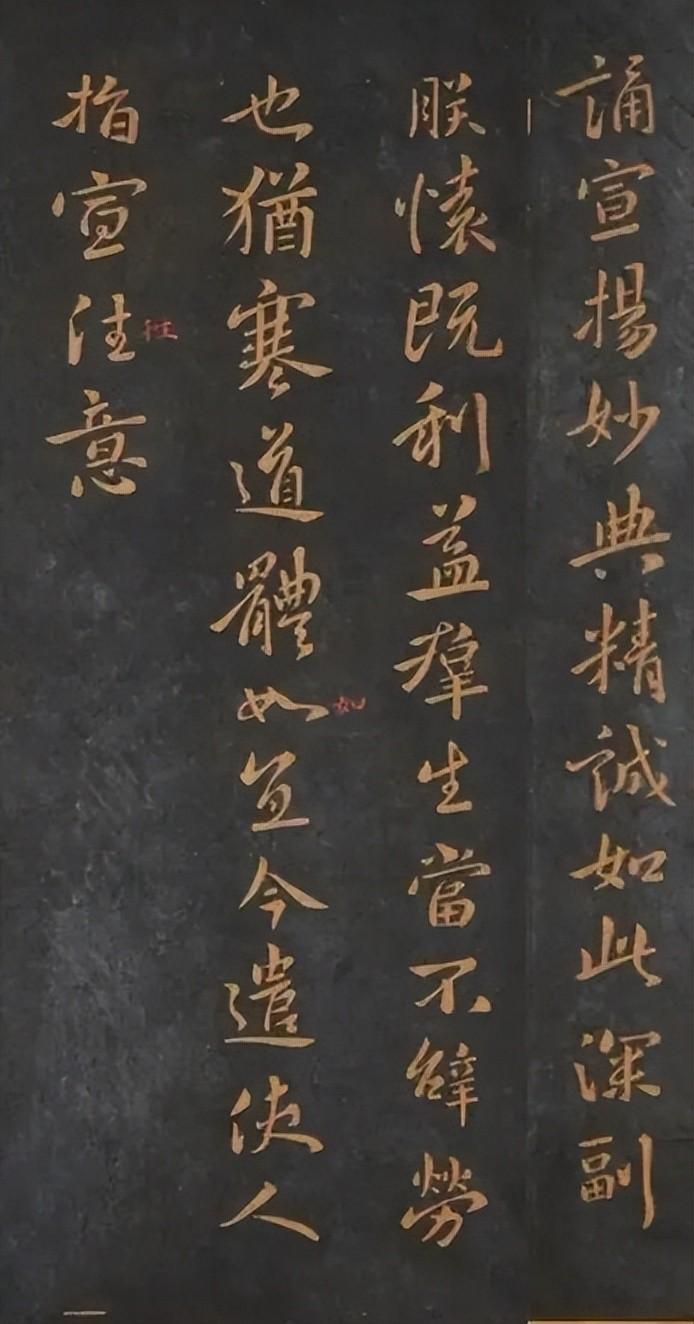 誦宣揚妙典精誠如此深副
朕懷既利益群生當不辭勞
也猶寒道體如宜今遣使人
如
指宣往意
往